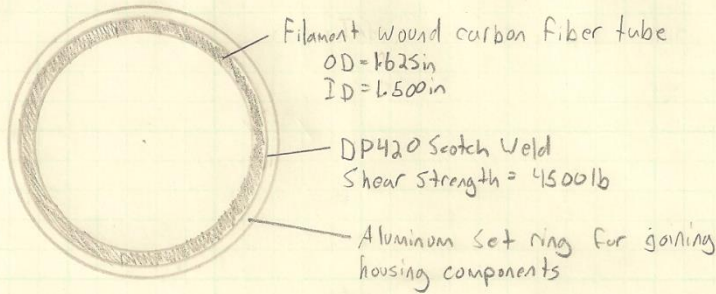 Filament wound carbon fiber tube
OD=1.625in
ID=1.500in
DP420 Scotch Weld
Shear Strength = 4500lb
Aluminum set ring for joining
housing components